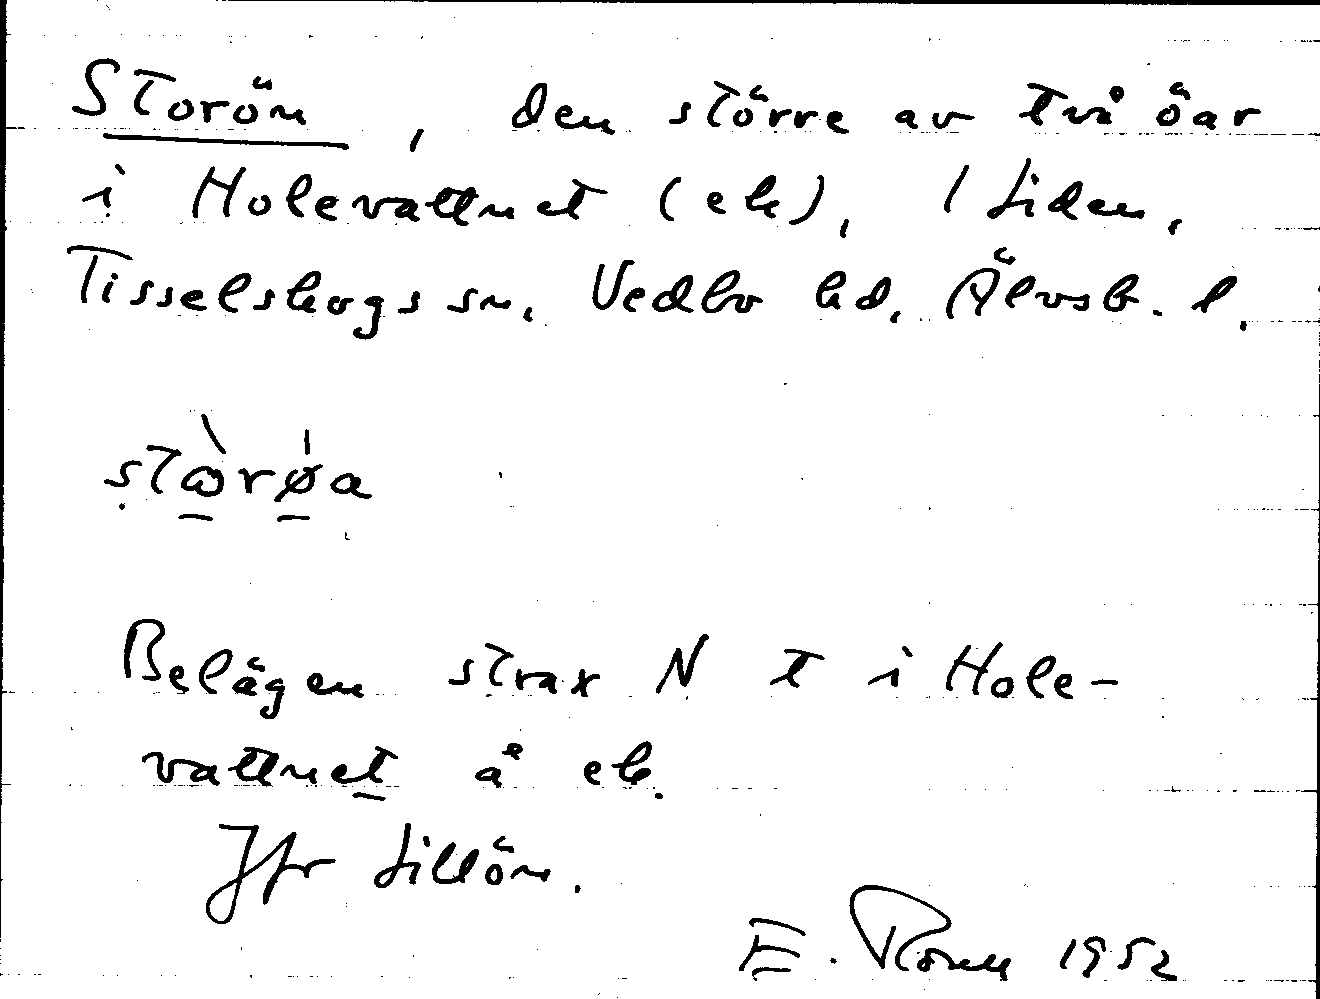 Storön, den större av två öar
i Holevattnet (ek), 1 Liden,
Tisselskogs sn, Vedbo hd, Älvsb. l.
Belägen strax N t i Hole-
vattnet å ek.
Jfr Lillön.
E. 1952